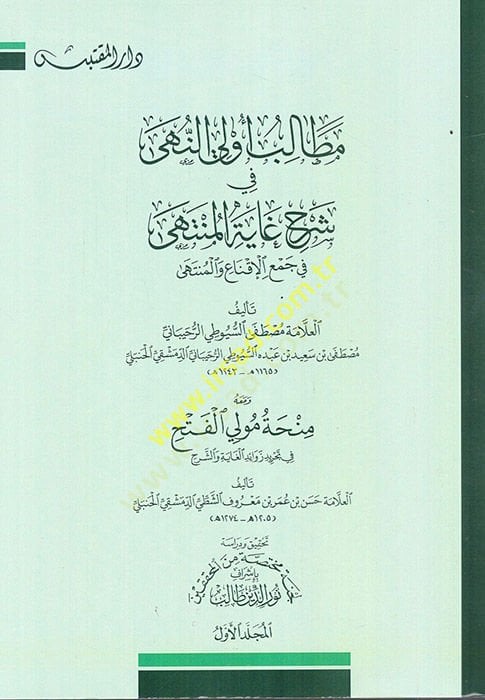 دار المقتبس
مَطَالِبُ أُولِي النُّهَى
فِي
شَرْحِ غَايَةِ المُنْتَهَى
فِي جَمْعِ الإِقْنَاعِ وَالْمُنْتَهَى
تَأليفُ
الْعَلَّامَة مُصْطَفَى السُّيُوطِي الرُّحَيبَانِيّ
مُصْطَفَى بْن سَعِيد بْن عَبْدِه السُّيُوطِي الرُّحَيبَانِيّ الدِّمَشْقِيّ الْحَنْبَلِيّ
وَمَعَهُ
مِنْحَةُ مُولِي الْفَتْحِ
فِي تَجْرِيدِ زَوَائِدِ الْغَايَةِ وَالشَّرْحِ
تَأليفُ
الْعَلَّامَة حَسَن بْن عُمَر بْن مَعْرُوف الشَّطِّيّ الدِّمَشْقِيّ الْحَنْبَلِيّ
(١٢٠٥هـ - ١٢٧٤هـ)
تَحْقِيق وَدِرَاسَة
لجنة مختصة من المحققين
بِإِشْرَافِ
نُور الدِّين طَالِب
المُجَلَّد الأَوَّلُ